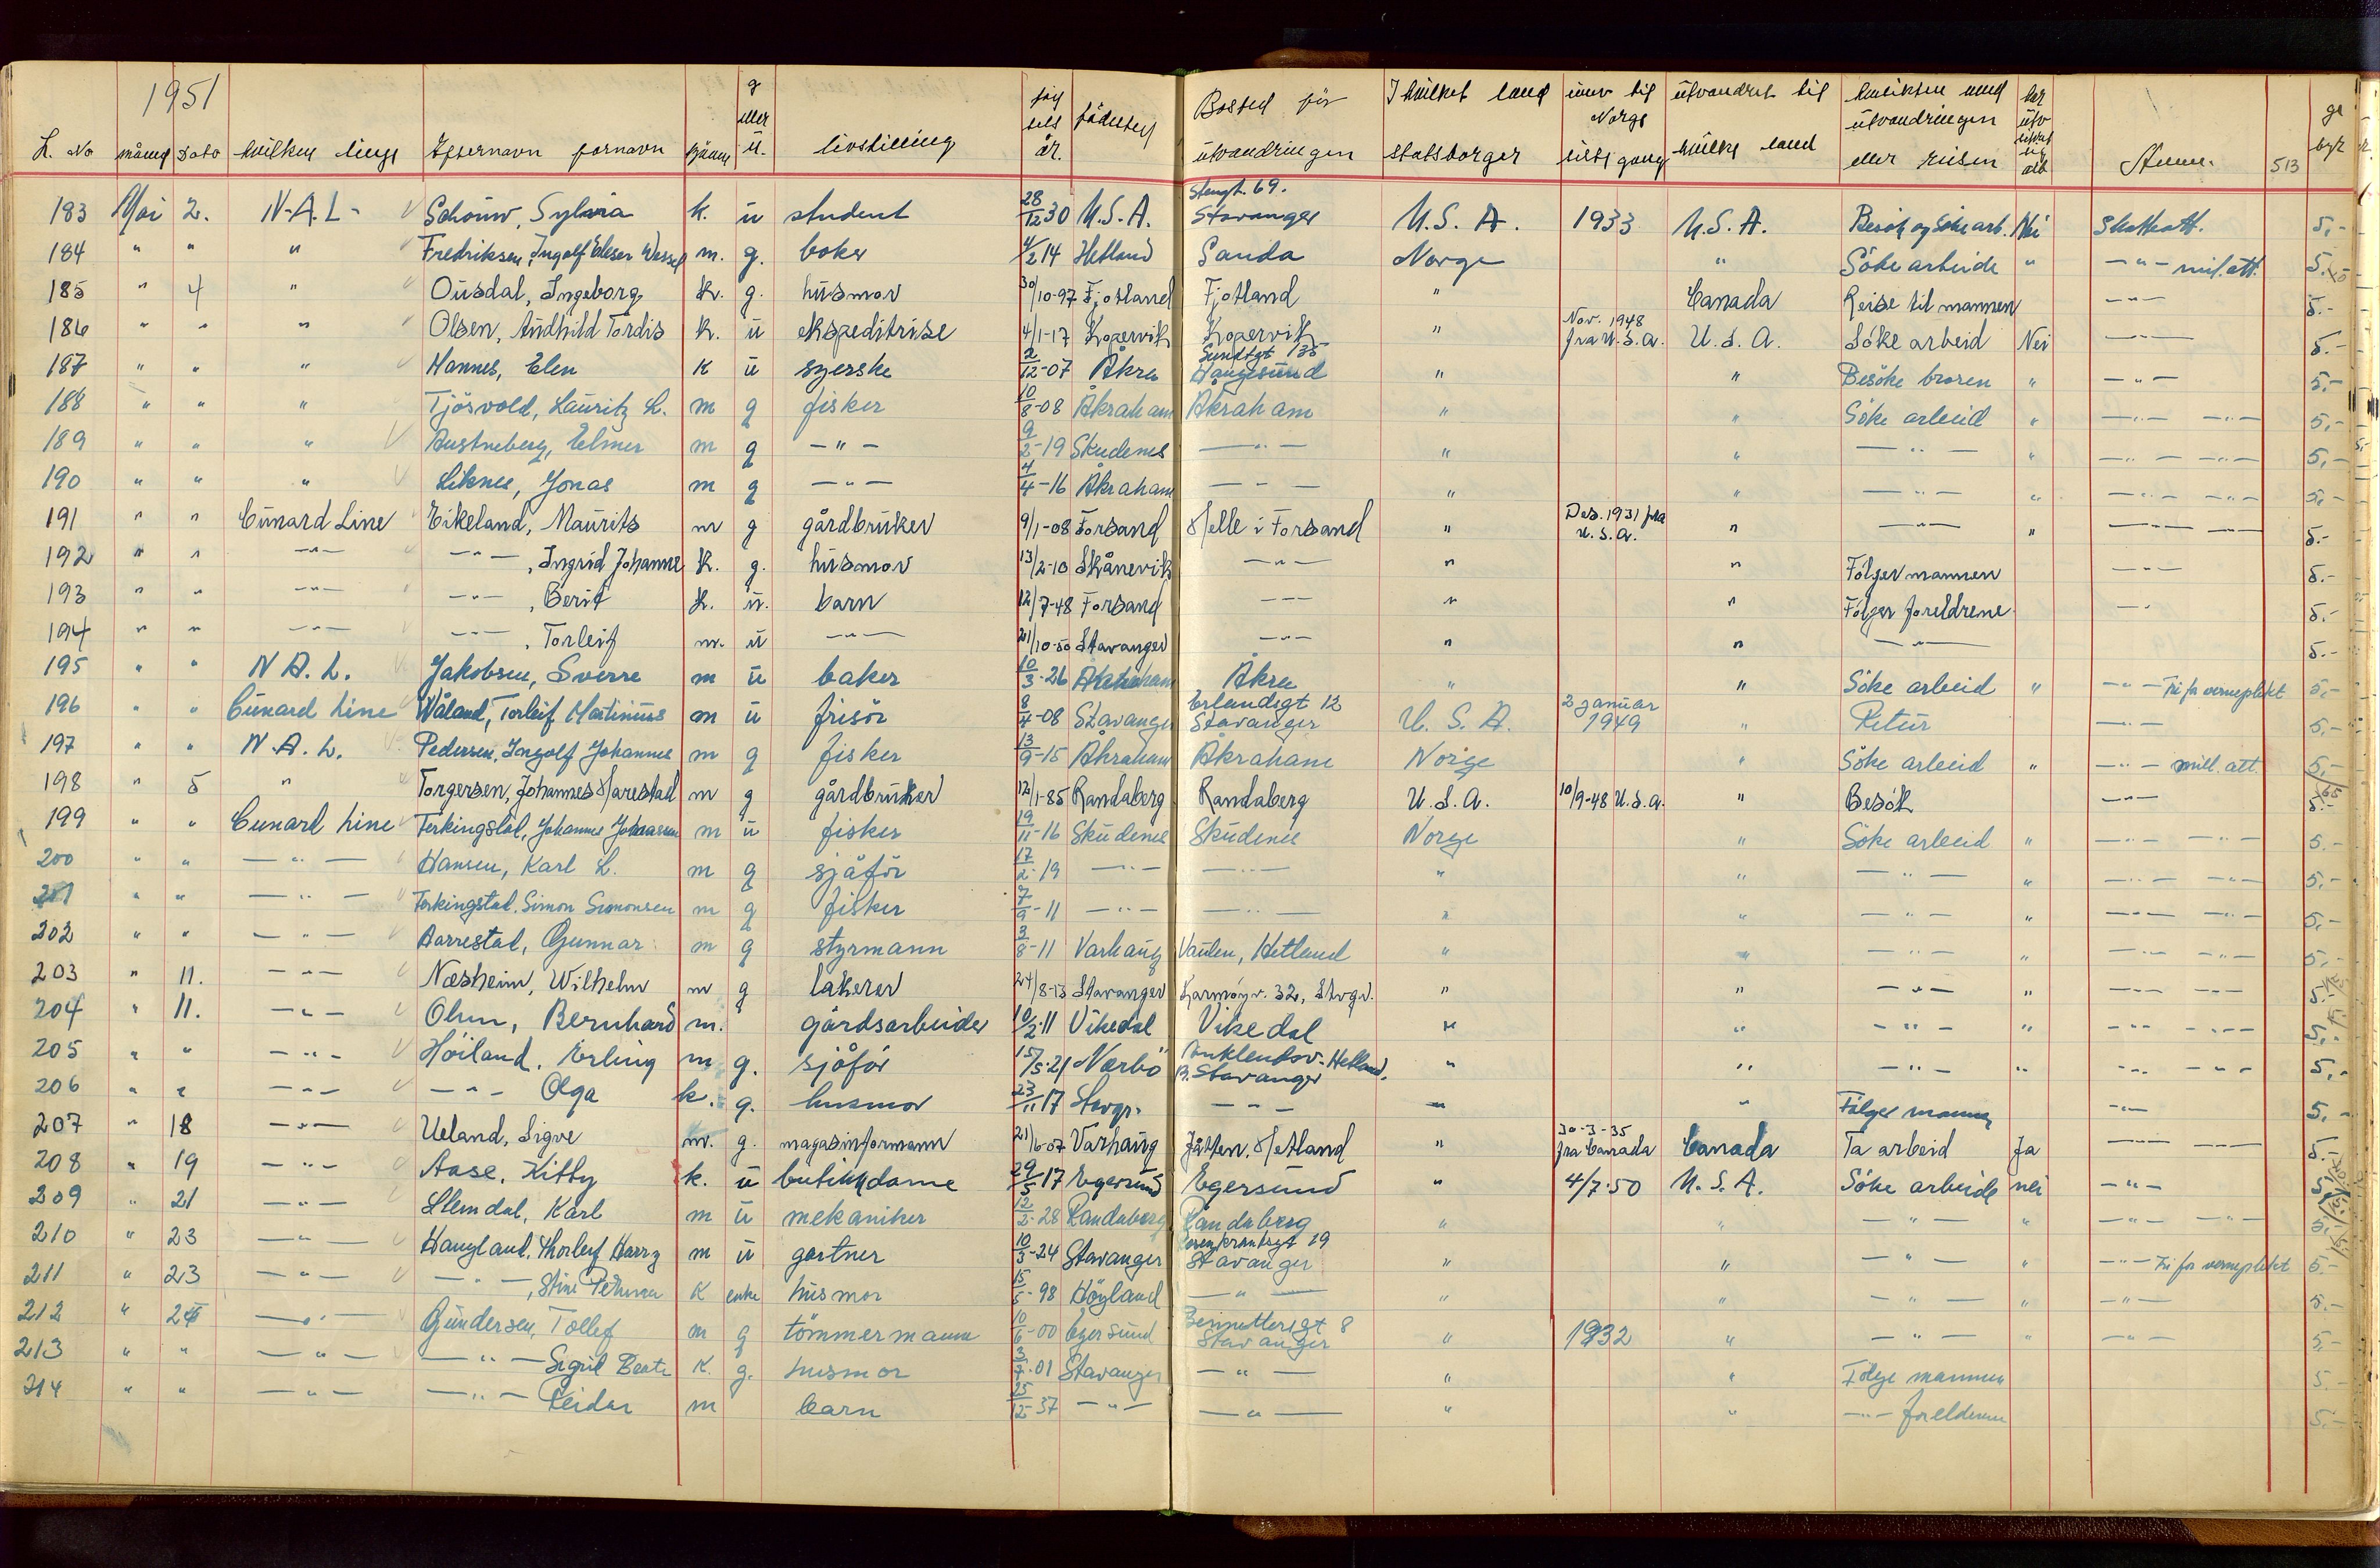 1951
L. No måned Dato hvilken linje Efternavn fornavn kjönn g eller u. livstilling föd sels år. födested Bosted för utvandringen I hvilket land statsborger Norge siste gang utvandret til hvilke land hensikten med utvandringen eller reisen Anm. 513 ge byr
183 Mai 2. N.A.L. Schouw, Sylvia k. u student 28/12 30 U.S.A. Stavanger 69. U.S.A. 1933 U.S.A. Besök og söke arb. Nei Skatteatt. 5,-
184 " " " Fredriksen, Ingolf Elieser Wessel m. g. 4/2 14 Hetland Sanda Norge " Söke arbeide " -"- mil.att. 5.-
185 " 4 " Ousdal, Ingeborg k. g. husmor 30/10-97 Fjotland Fjotland " Canada Reise til mannen -"- 5.-
186 " " " Olsen, Audhild Tordis k. u ekspeditrise 4/1-17 Kopervik Kopervik " Nov. 1948 fra U.S.A. U.S.A. Söke arbeid Nei -"- 5.-
187 " " " Hannes, Elen k u syerske 2/12-07 Åkra Sundtgt 135 Haugesund " " Besöke broren " -"- 5,-
188 " " " Tjösvold, Lauritz L. m g fisker 10/8-08 Åkraham Åkraham " " Söke arbeid " -"- -"- 5,-
189 " " " Austneberg, Elmer m g -"- 9/2-19 Skudenes -"- " " -"- " -"- -"- 5,-
190 " " " Liknes, Jonas m g -"- 4/4-16 Åkraham -"- " " -"- " -"- -"- 5,-
191 " " Cunard Line Eikeland, Maurits m g gårdbruker 9/1-08 Forsand Helle i Forsand " Des. 1931 fra U.S.A. " -"- " -"- -"- 5.-
192 " " -"- -"-, Ingrid Johanne k. g. husmor 13/2-10 Skånevik -"- " " Fölger mannen -"- 5.-
193 " " -"- -"-, Berit k. u. barn 12/7-48 Forsand -"- " " Fölger foreldrene -"- 5.-
194 " " -"- -"-, Torleif m. u -"- 21/10-50 Stavanger -"- " " -"- 5.-
195 " " N.A.L. Jakobsen, Sverre m u baker 10/3-26 Åkraham Åkra " " Söke arbeid " -"- Fri for verneplikt 5,-
196 " " Cunard Line Wåland, Torleif Martinius m u frisör 8/4-08 Stavanger Erlendsgt 12 Stavanger U.S.A. 2 januar 1949 " Retur -"- 5,-
197 " " N.A.L. Pedersen, Ingolf Johannes m g fisker 13/9-15 Åkraham Åkraham Norge " Söke arbeid " -"- mill. att. 5,-
198 " 5 " Torgersen, Johannes Harestad m g gårdbruker 12/1-85 Randaberg Randaberg U.S.A. 10/9-48 U.S.A. " Besök -"- 5.-
199 " " Cunard Line Ferkingstad, Johannes Johannesen m u fisker 19/11-16 Skudenes Skudenes Norge " Söke arbeid " -"- -"- 5.-
200 " " -"- Hansen, Karl L. m g sjåför 17/2-19 -"- -"- " " -"- " -"- -"- 5,-
201 " " -"- Ferkingstad, Simon Simonsen m g fisker 7/9-11 -"- -"- " " -"- " -"- -"- 5,-
202 " " -"- Aarrestad, Gunnar m g styrmann 3/8-11 Varhaug Vaulen, Hetland " " -"- -"- -"- 5,-
203 " 11. -"- Næsheim, Wilhelm m g lakerer 24/8-13 Stavanger Karmöyv. 32, Stvgr. " " -"- " -"- -"- 5.-
204 " 11. -"- Ohm, Bernhard m. gårdsarbeider 10/2-11 Vikedal Vikedal " " -"- " -"- -"- 5,-
205 " " -"- Höiland, Erling m g. sjåför 15/5-21 Nærbö Hetland, Stavanger " " -"- " -"- -"- 5,-
206 " " -"- -"- Olga k. g. husmor 23/11 17 Stavgr. -"- " " Fölger mannen -"- 5,-
207 " 18 -"- Ueland, Sigve m. g. magasinformann 21/6-07 Varhaug Jåtten, Hetland " 30-3-35 fra Canada Canada Ta arbeid Ja -"- -"- 5.-
208 " 19 -"- Aase, Kitty k. u butikkdame 29/5 17 Egersund Egersund " 4/7-50 U.S.A. Söke arbeide nei -"- 5,-
209 " 21 -"- Slemdal, Karl m u mekaniker 12/2-28 Randaberg Randaberg " " -"- " -"- -"- 5,-
210 " 23 -"- Haugland, Thorleif Harry m u gartner 10/3-24 Stavanger Rosenkrantzgt 19 Stavanger " " -"- " -"- Fri for verneplikt 5.-
211 " 23 -"- -"-, Stine Petrine k enke husmor 15/5-98 Höyland -"- " " -"- " -"- 5.-
212 " 25 -"- Gundersen, Tollef m g tömmermann 10/6-00 Egersund Stavanger 8 " 1932 " -"- " -"- 5,-
213 " " -"- -"- Sigrid Beate k. g. husmor 3/7-01 Stavanger -"- " " Fölge mannen 5.-
214 " " -"- -"- Reidar m barn 25/12-37 -"- -"- " " -"- foreldrene 5,-